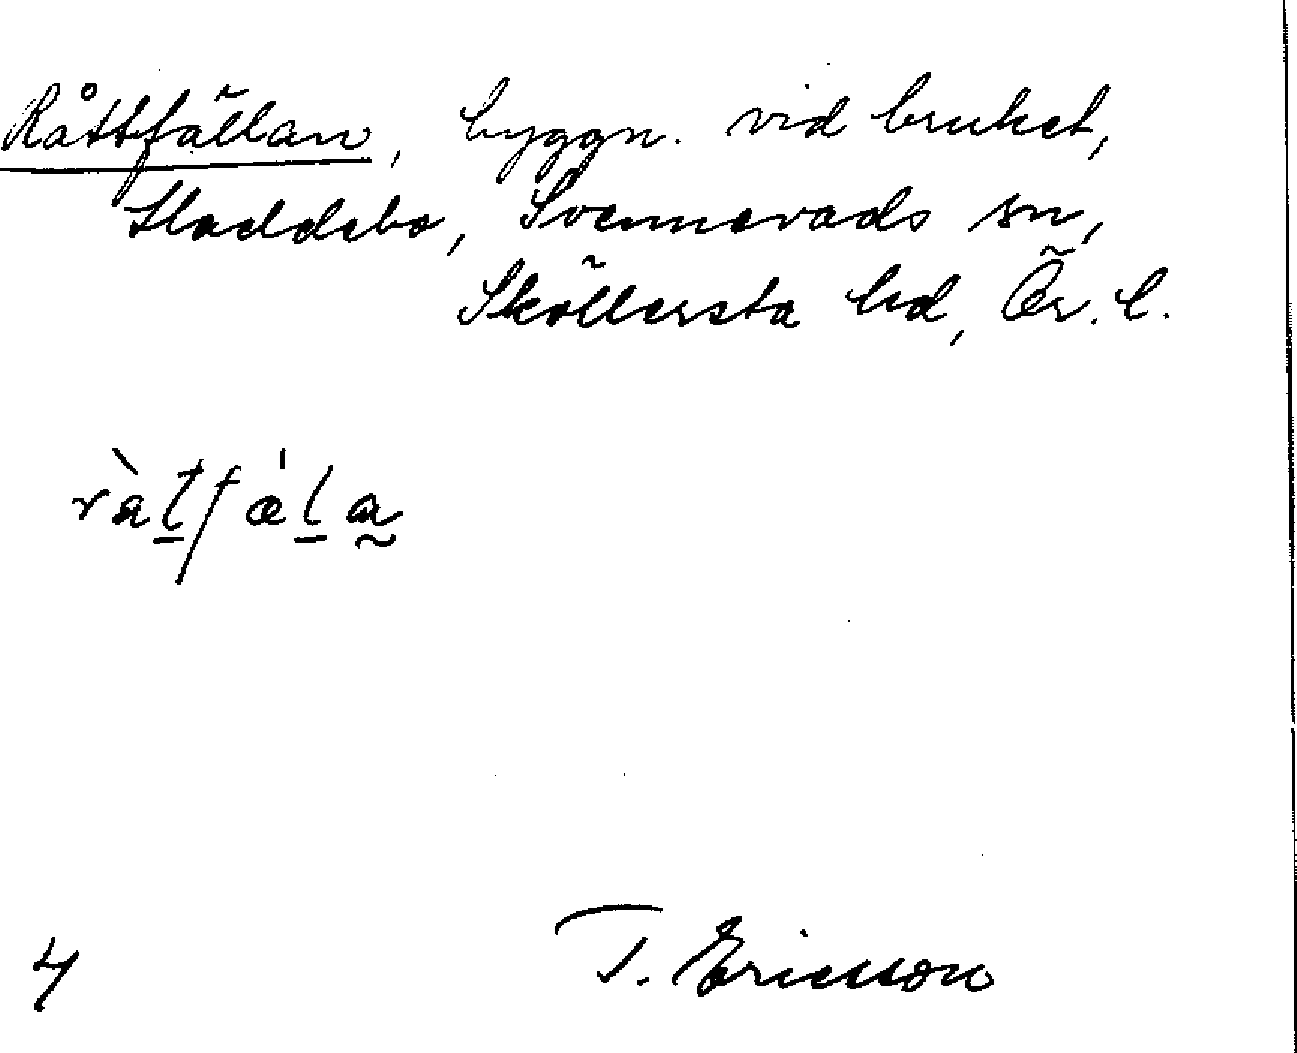 Råttfällan, byggn. vid bruket,
Haddebo, Svennevads sn,
Sköllersta hd, Ör. l.
ràt̲fäl̲a̰
4
T. Ericsson